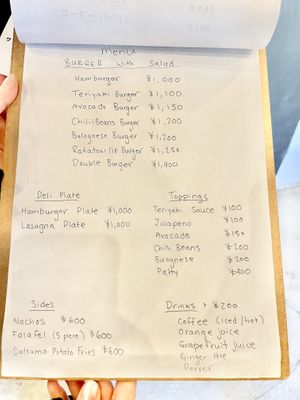 Menu
BURGER with Salad
Hamburger ¥1,000
Teriyaki Burger ¥1,100
Avocado Burger ¥1,150
Chili Beans Burger ¥1,200
Bolognese Burger ¥1,200
Ratatoville Burger ¥1,250
Double Burger ¥1,400
Deli Plate
Hamburger Plate ¥1,000
Lasagna Plate ¥1,000
Toppings
Teriyaki Sauce ¥100
Jalapeno ¥100
Avocado ¥150
Chili Beans ¥200
Bolognese ¥200
Patty ¥400
Sides
Nachos ¥600
Falafel (5 piece) ¥600
Satsuma Potato Fries ¥600
Drinks + ¥200
Coffee (iced/hot)
Orange juice
Grapefruit juice
Ginger Ale